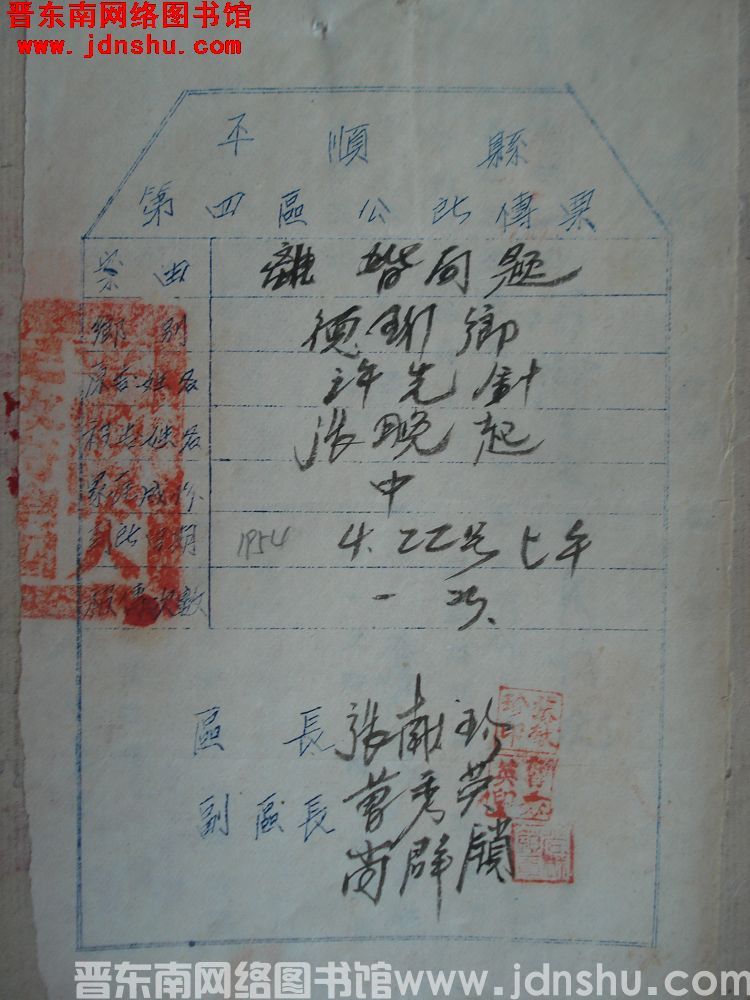 晋东南网络图书馆
www.jdnshu.com
平順縣
第四區公所傳票
案由 離婚问题
鄉別
原告姓名 許先針
被告姓名 張晚起
家庭成份 中
到所日期 1954 4.22号上午
服傳次數 一次
區長 張献珍
副區長 曹秀英
尚群鎖
晋东南网络图书馆www.jdnshu.com